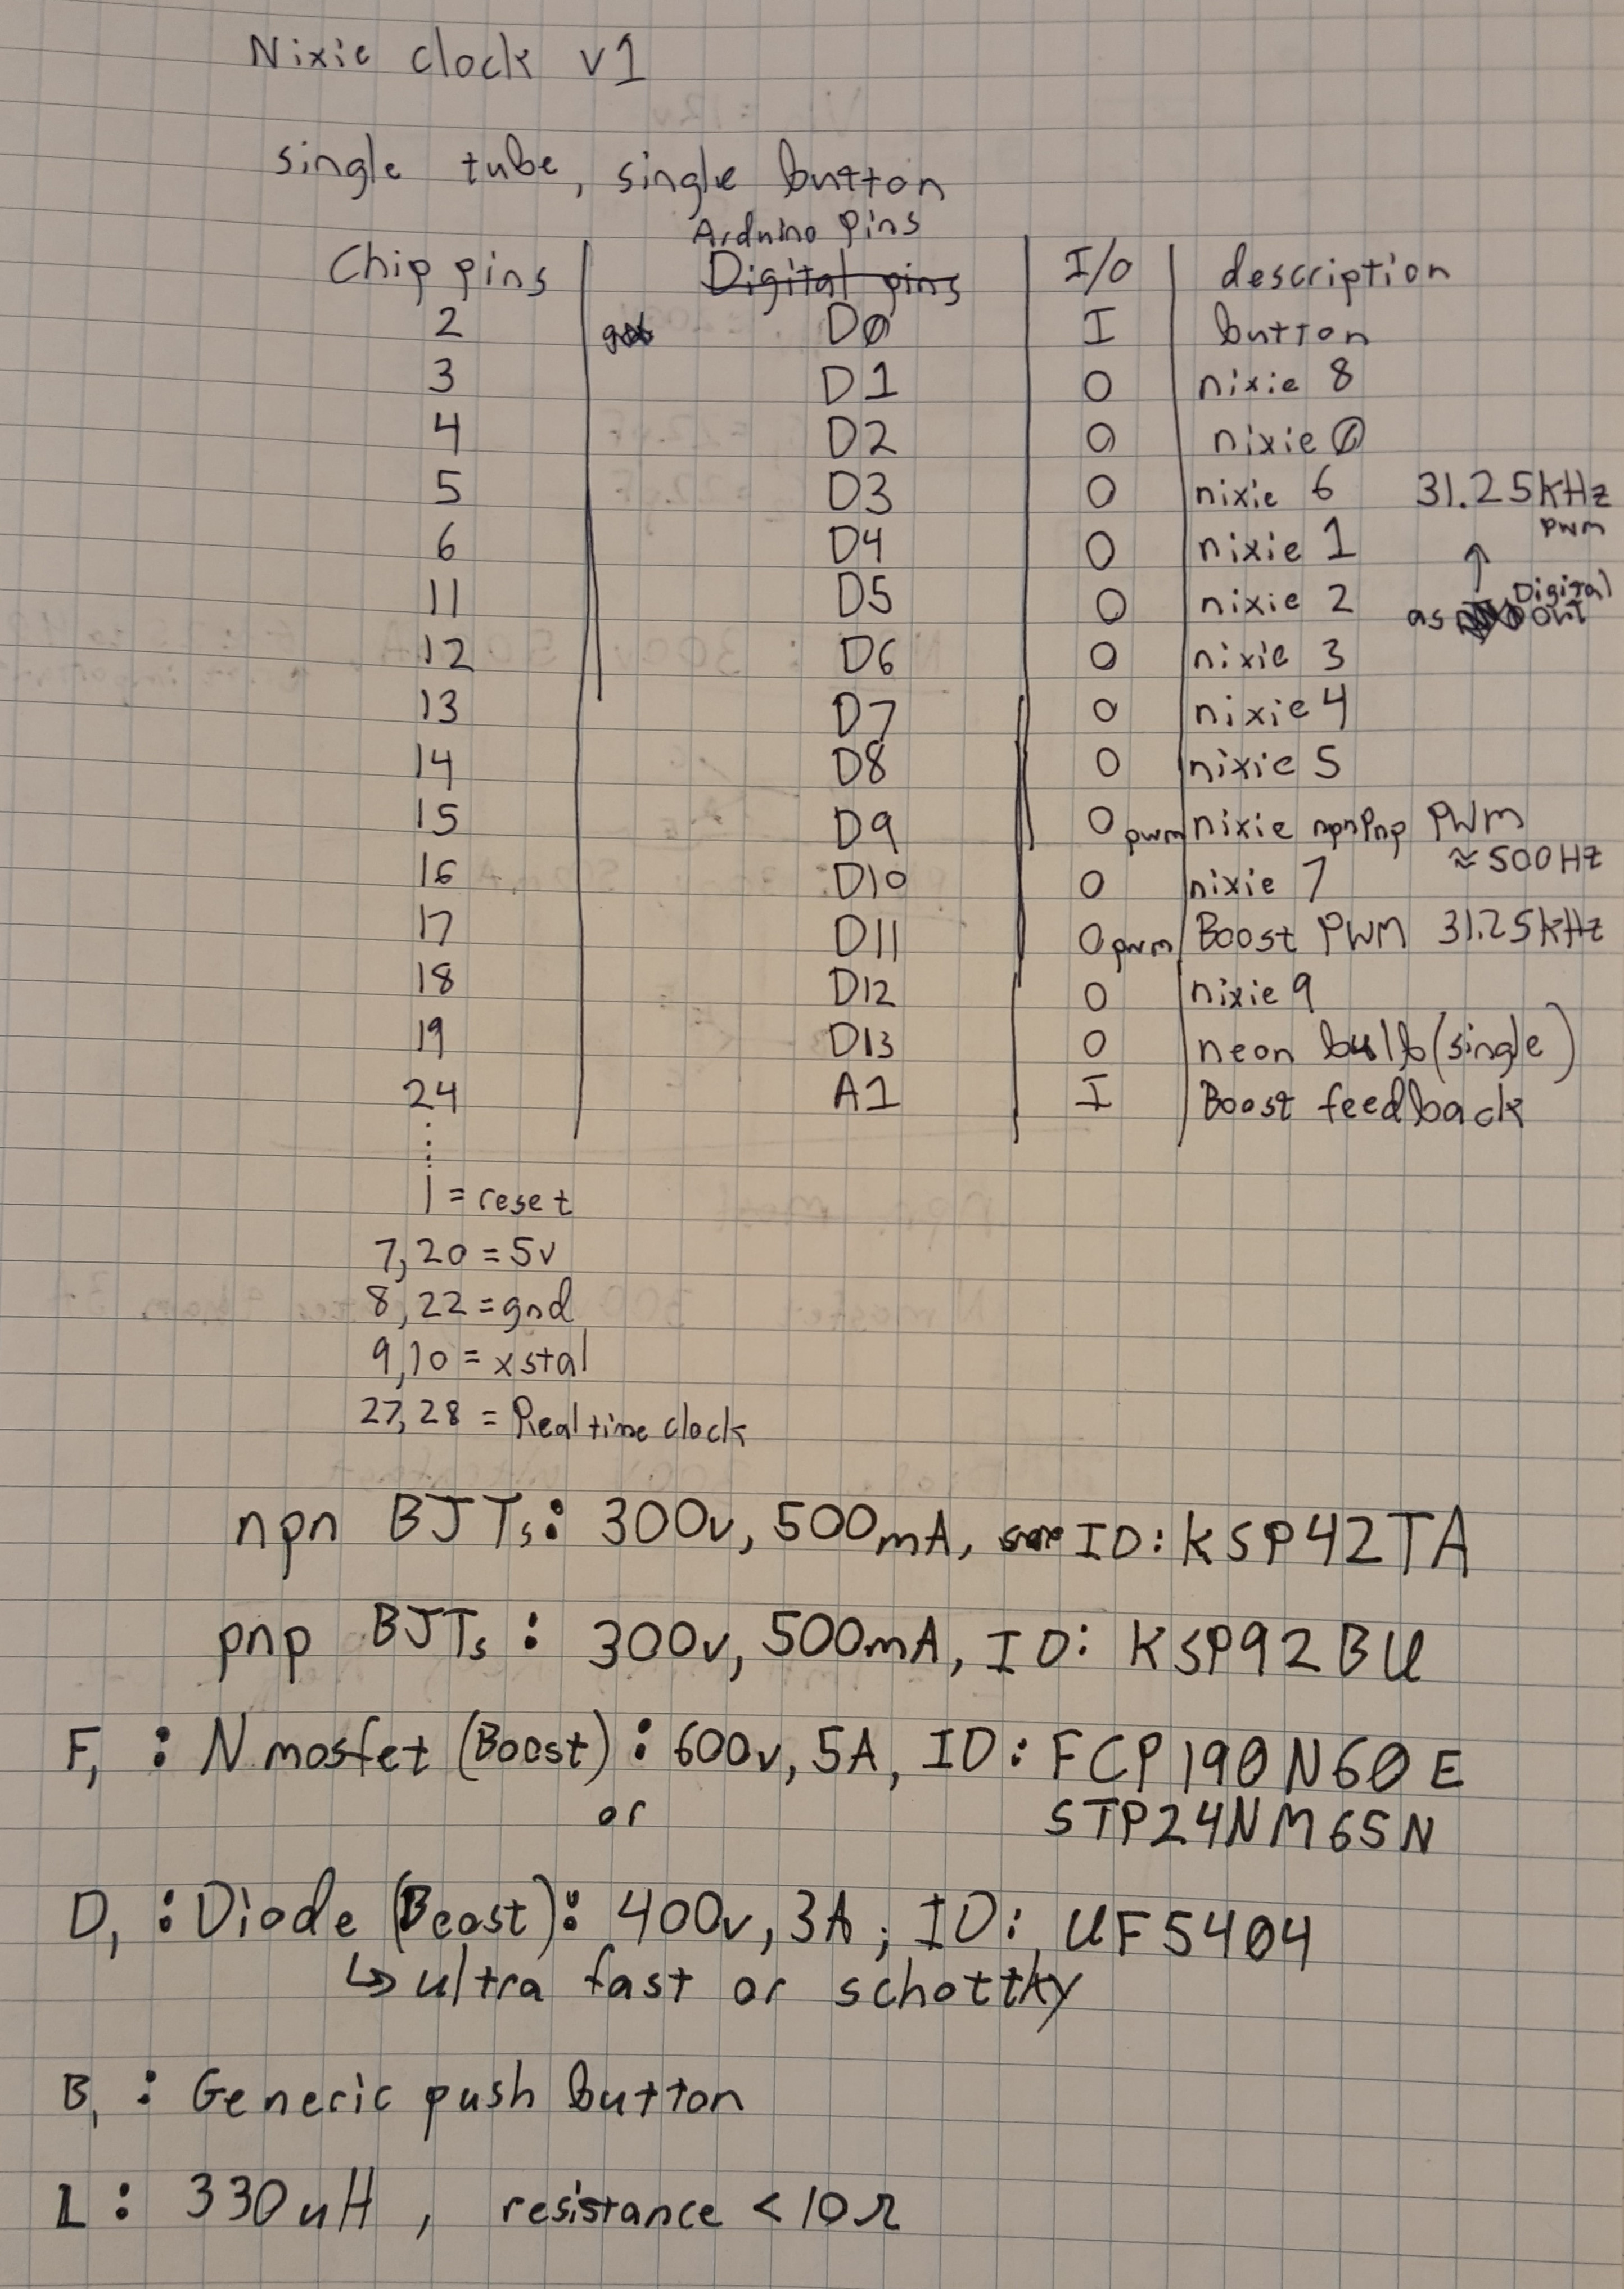 Nixie clock v1
single tube, single button
Arduino Pins
Chip pins Digital pins I/O description
2 D0 I button
3 D1 O nixie 8
4 D2 O nixie 0
5 D3 O nixie 6 31.25kHz
pwm
6 D4 O nixie 1 ↑
11 D5 O nixie 2 as Digital out
12 D6 O nixie 3
13 D7 O nixie 4
14 D8 O nixie 5
15 D9 O pwm nixie npnpnp PWM
≈ 500Hz
16 D10 O nixie 7
17 D11 O pwm Boost PWM 31.25kHz
18 D12 O nixie 9
19 D13 O neon bulb (single)
24 A1 I Boost feedback
1 = reset
7, 20 = 5v
8, 22 = gnd
9, 10 = xstal
27, 28 = Real time clock
npn BJTs: 300v, 500mA, ID: KSP42TA
pnp BJTs: 300v, 500mA, ID: KSP92BU
F1 : N mosfet (Boost): 600v, 5A, ID: FCP190N60E
or STP24NM65N
D1 : Diode (Boost): 400v, 3A, ID: UF5404
↳ ultra fast or schottky
B1 : Generic push button
L : 330uH, resistance < 10Ω